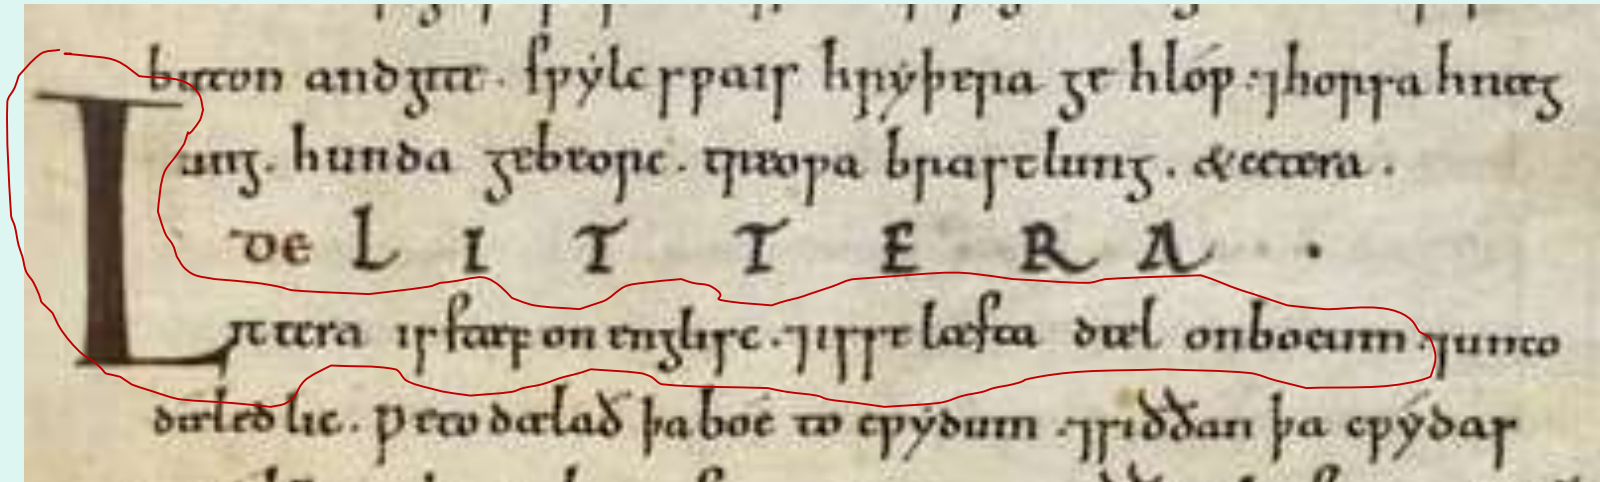 buton andgite. sƿýlc sƿa is hrýþera ge hlóƿ. ⁊horsa hnæg
ung. hunda gebeorc. treoƿa brastlung. &cetera.
DE LITTERA.
Littera is stæf on englisc. ⁊isse læsta dæl onbocum. ⁊unto
dæledlic. ƿe todælað þa bóc to cƿýdum. ⁊siððan þa cƿýdas